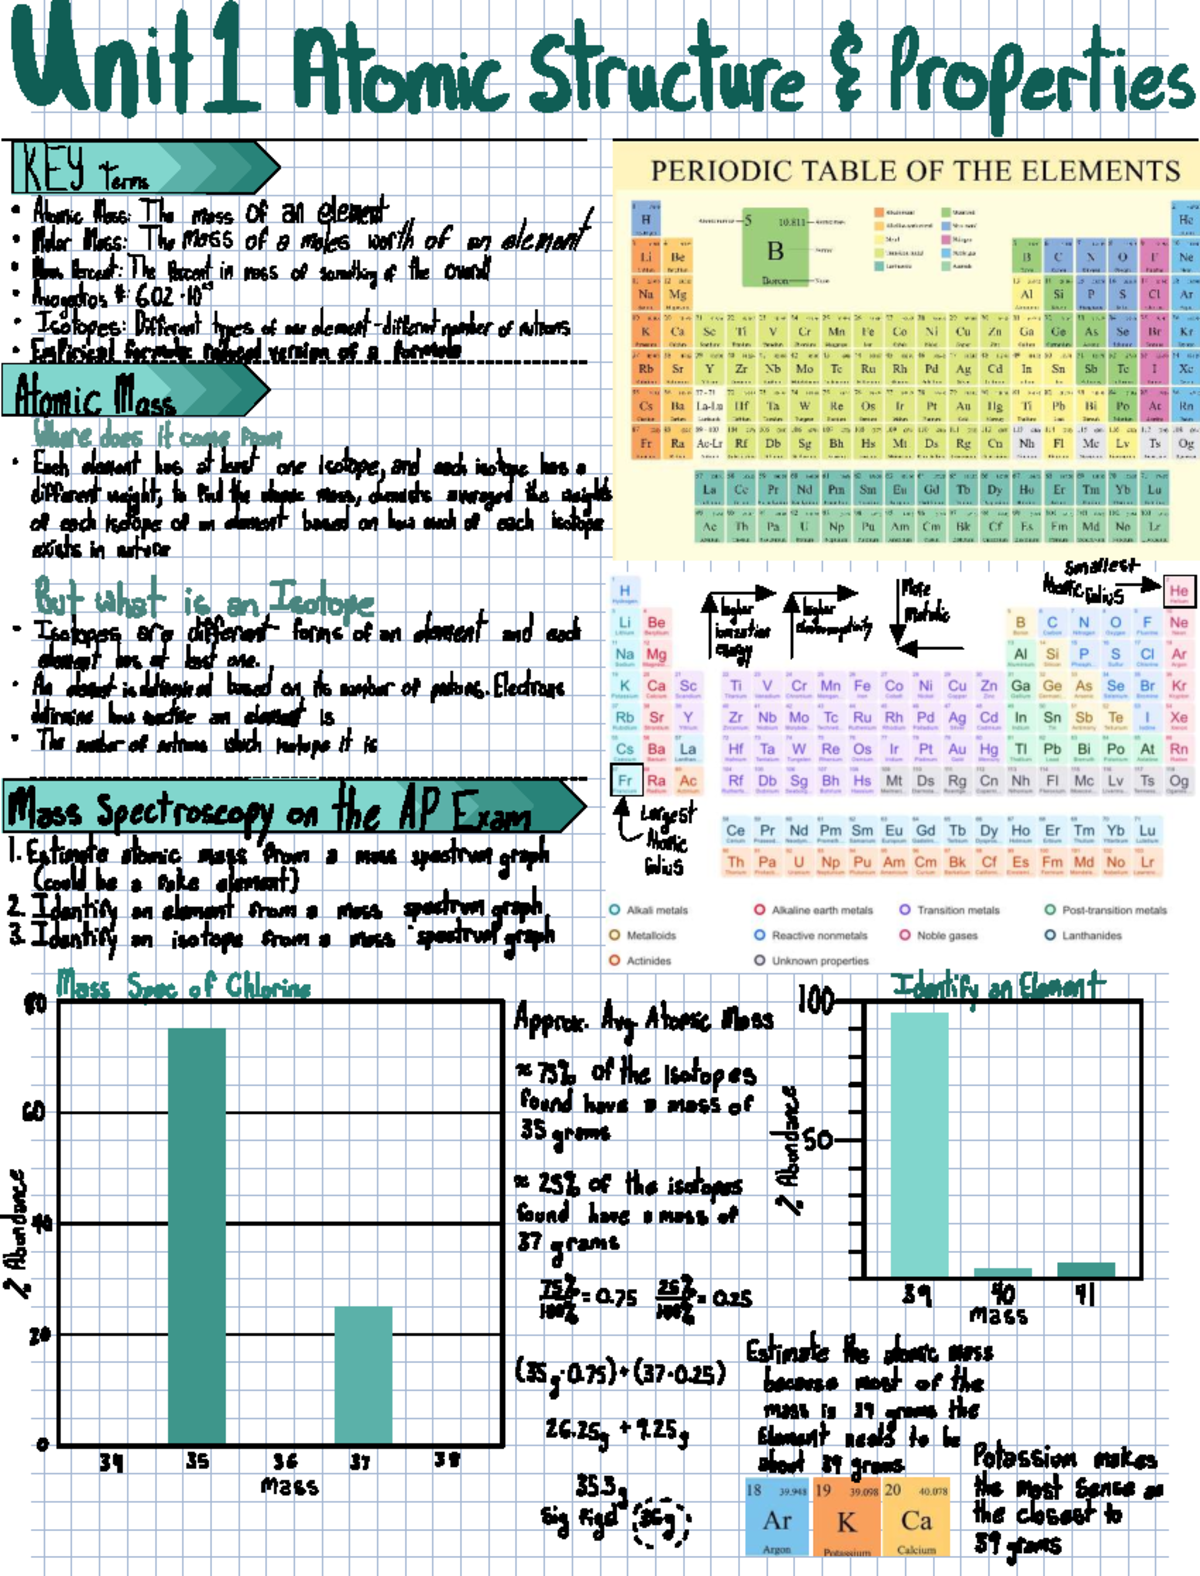 Unit 1 Atomic Structure & Properties
KEY Terms
• Atomic Mass: The mass of an element
• Molar Mass: The mass of a moles worth of an element
• Mass Percent: The Percent in mass of something of the overall
• Avogadro's #: 6.02 · 10²³
• Isotopes: Different types of one element-different number of nutrons
• Empirical formula: reduced version of a formula
Atomic Mass
Where does it come from
• Each element has at least one isotope, and each isotope has a
different weight, to find the atomic mass, chemists averaged the weights
of each isotope of an element based on how much of each isotope
exists in nature
But what is an Isotope
• Isotopes are different forms of an element and each
element has at least one.
• An element is determined based on its number of protons. Electrons
determine how reactive an element is
• The number of nutrons which isotope it is
Mass Spectroscopy on the AP Exam
1. Estimate atomic mass from a mass spectrum graph
(could be a fake element)
2. Identify an element from a mass spectrum graph
3. Identify an isotope from a mass spectrum graph
PERIODIC TABLE OF THE ELEMENTS
5 10.811
B
Boron
H He
Li Be B C N O F Ne
Na Mg Al Si P S Cl Ar
K Ca Sc Ti V Cr Mn Fe Co Ni Cu Zn Ga Ge As Se Br Kr
Rb Sr Y Zr Nb Mo Tc Ru Rh Pd Ag Cd In Sn Sb Te I Xe
Cs Ba La-Lu Hf Ta W Re Os Ir Pt Au Hg Ti Pb Bi Po At Rn
Fr Ra Ac-Lr Rf Db Sg Bh Hs Mt Ds Rg Cn Nh Fl Mc Lv Ts Og
La Ce Pr Nd Pm Sm Eu Gd Tb Dy Ho Er Tm Yb Lu
Ac Th Pa U Np Pu Am Cm Bk Cf Es Fm Md No Lr
Smallest
Atomic Radius
higher
ionization
energy
higher
electronegativity
More
metalic
H He
Li Be B C N O F Ne
Na Mg Al Si P S Cl Ar
K Ca Sc Ti V Cr Mn Fe Co Ni Cu Zn Ga Ge As Se Br Kr
Rb Sr Y Zr Nb Mo Tc Ru Rh Pd Ag Cd In Sn Sb Te I Xe
Cs Ba La Hf Ta W Re Os Ir Pt Au Hg Tl Pb Bi Po At Rn
Fr Ra Ac Rf Db Sg Bh Hs Mt Ds Rg Cn Nh Fl Mc Lv Ts Og
Largest
Atomic
Radius
Ce Pr Nd Pm Sm Eu Gd Tb Dy Ho Er Tm Yb Lu
Th Pa U Np Pu Am Cm Bk Cf Es Fm Md No Lr
Alkali metals Alkaline earth metals Transition metals Post-transition metals
Metalloids Reactive nonmetals Noble gases Lanthanides
Actinides Unknown properties
Mass Spec of Chlorine
80
60
40
20
0
% Abundance
34 35 36 37 38
Mass
Approx. Avg. Atomic Mass
≈ 75% of the Isotopes
found have a mass of
35 grams
≈ 25% of the isotopes
found have a mass of
37 grams
75%/100% = 0.75 25%/100% = 0.25
(35g·0.75)+(37·0.25)
26.25g + 9.25g
35.5g
Sig Figs! 36g
Identify an Element
100
50
% Abundance
39 40 41
Mass
Estimate the atomic mass
because most of the
mass is 39 grams the
Element needs to be
about 39 grams
18 39.948 19 39.098 20 40.078
Ar K Ca
Argon Potassium Calcium
Potassium makes
the most sense as
the closest to
39 grams